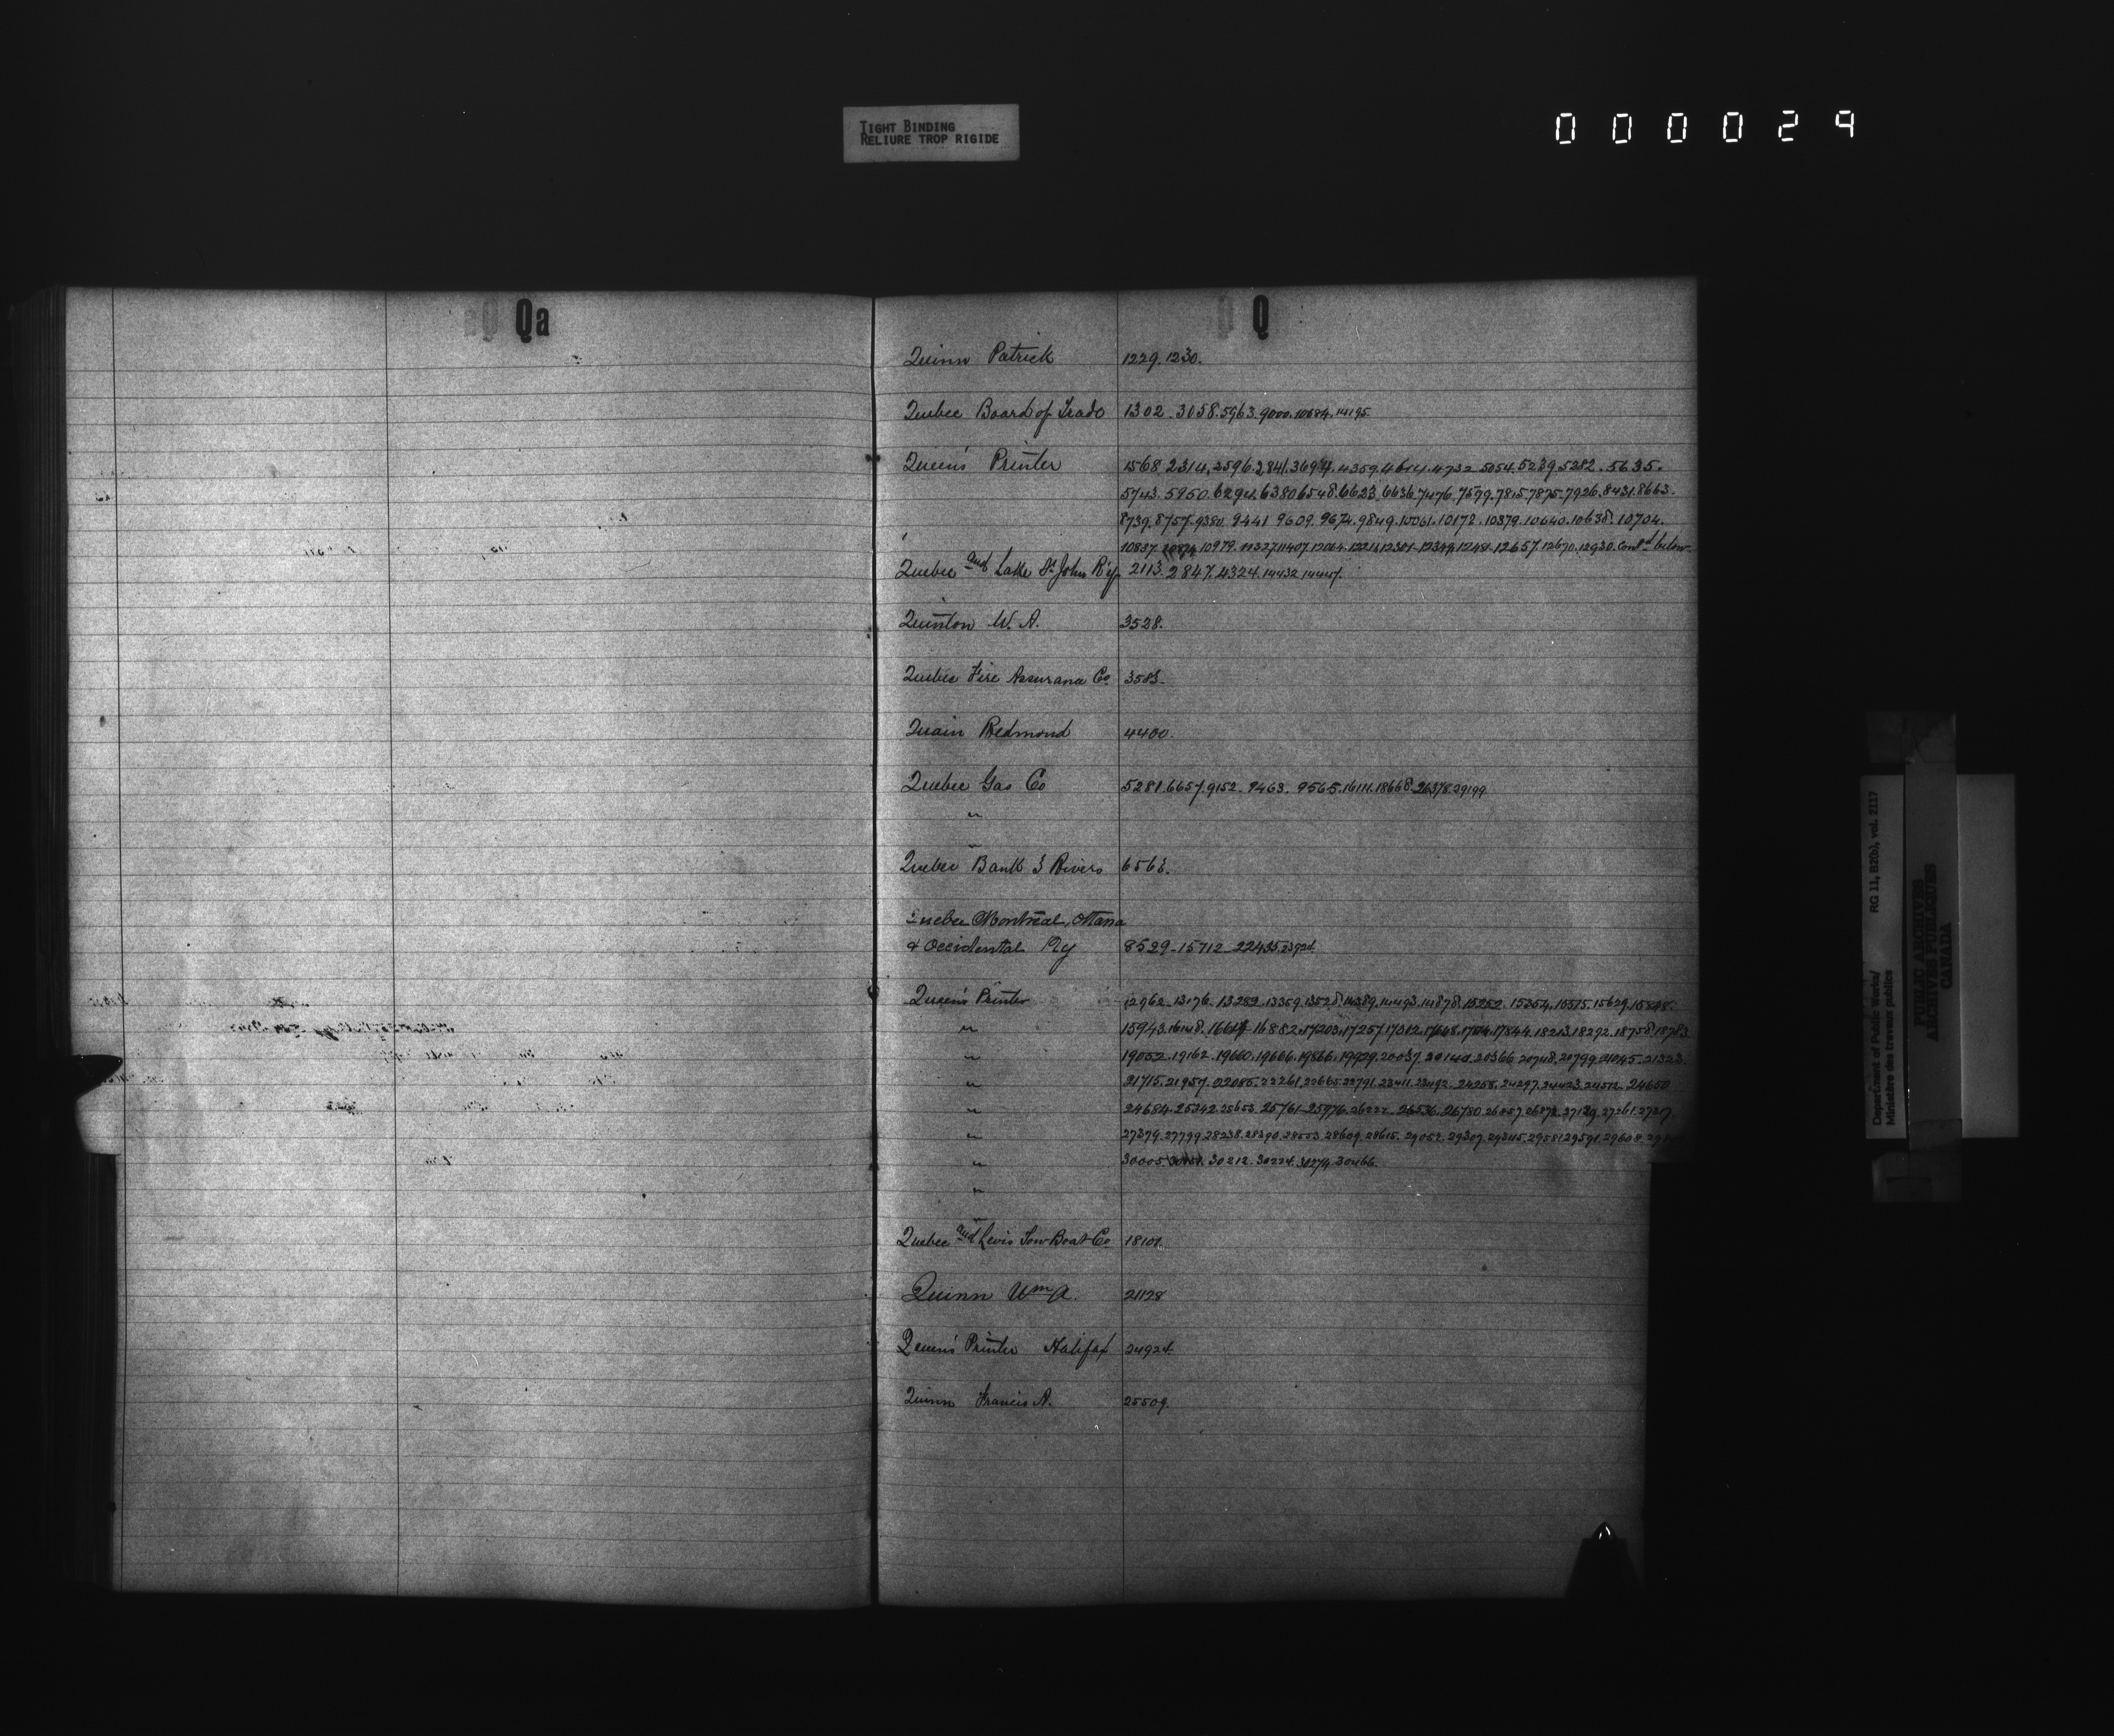 TIGHT BINDING
RELIURE TROP RIGIDE
000029
Qa
Q
Quinn Patrick 1229. 1230.
Quebec Board of Trade 1302. 3058. 5963. 9000. 10684. 14195.
Queen's Printer 1568. 2314. 2596. 2841. 3694. 4359. 4614. 4732. 5054. 5239. 5282. 5635.
5743. 5950. 6294. 6380. 6548. 6623. 6636. 7476. 7599. 7815. 7875. 7926. 8431. 8663.
8739. 8757. 9380. 9441. 9609. 9674. 9849. 10061. 10172. 10379. 10640. 10638. 10704.
10837. 10979. 11327. 11407. 12657. 12670. 12930. Contd below
Quebec and Lake St John R'y 2113. 2847. 4324. 14432. 14447.
Quinton W. A. 3528.
Quebec Fire Assurance Co 3583.
Quain Redmond 4400.
Quebec Gas Co 5281. 6657. 9152. 9463. 9565. 16111. 18668. 26378. 29199
"
Quebec Bank 3 Rivers 6563.
Quebec Montreal, Ottawa
& Occidental Ry 8529. 15712. 22435.
Queen's Printer 12962. 13176. 13282. 13359. 13528. 14389. 14493. 14878. 15252. 15354. 15515. 15629. 15848.
" 15943. 16148. 16882. 17203. 17257. 17312. 17844. 18213. 18292. 18758.
" 19052. 19162. 19660. 19866. 19929. 20037. 20366. 20748. 20799. 21045. 21323.
" 21715. 21957. 22085. 22261. 22665. 22791. 23411. 23492. 24258. 24297. 24423. 24512. 24650
" 24684. 25342. 25653. 25761. 25976. 26222. 26536. 26780. 27139. 27261.
" 27379. 27799. 28238. 28390. 28553. 28609. 28615. 29052. 29307. 29345. 29581. 29591. 29608.
" 30005. 30212. 30224. 30274. 30466.
"
Quebec and Levis Tow Boat Co 18101.
Quinn Wm A. 21128
Queen's Printer Halifax 24924.
Quinn Francis A. 25509.
Department of Public Works/
Ministère des travaux publics
RG 11, B2(b), vol. 2117
PUBLIC ARCHIVES
ARCHIVES PUBLIQUES
CANADA